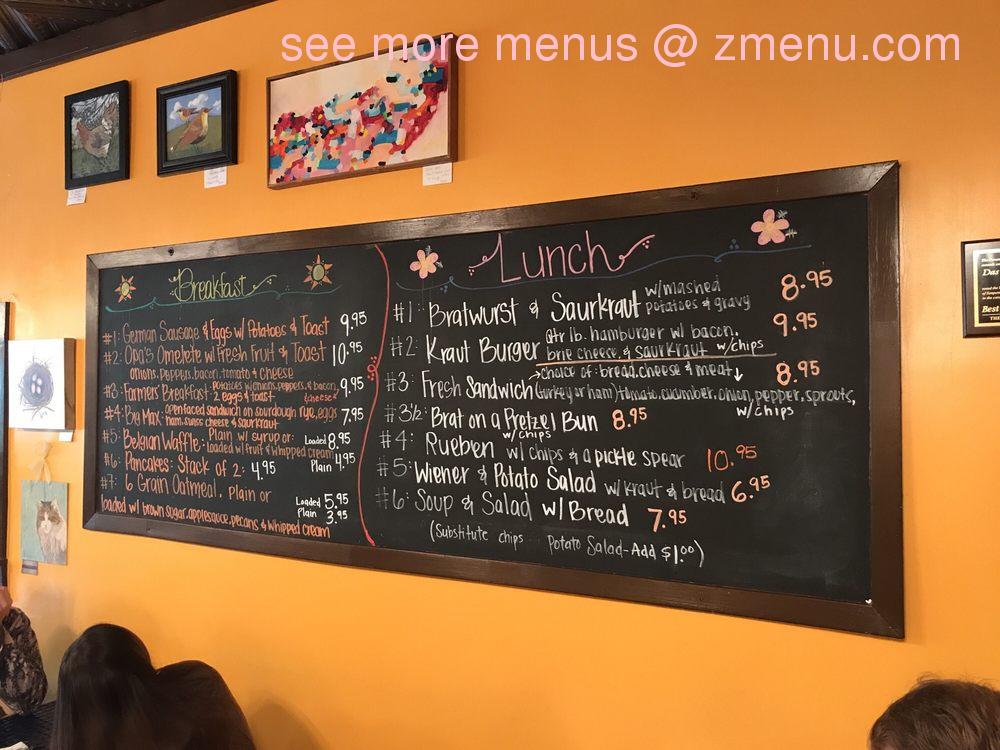 see more menus @ zmenu.com
Breakfast
#1: German Sausage & Eggs w/ Potatoes & Toast 9.95
#2: Opa's Omelete w/ Fresh Fruit & Toast 10.95
onions, peppers, bacon, tomato & cheese
#3: Farmers' Breakfast: potatoes w/ onions, peppers, & bacon, 9.95
2 eggs & toast & cheese
#4: Big Max: open faced sandwich on sourdough rye, eggs 7.95
ham, swiss cheese & saurkraut
#5: Belgian Waffle: Plain w/ syrup or: Loaded 8.95
Loaded w/ fruit & whipped cream Plain 4.95
#6: Pancakes: Stack of 2: 4.95
#7: 6 Grain Oatmeal, Plain or Loaded 5.95
Plain 3.95
loaded w/ brown sugar, applesauce, pecans & whipped cream
Lunch
#1: Bratwurst & Saurkraut w/ mashed potatoes & gravy 8.95
#2: Kraut Burger Qtr lb. hamburger w/ bacon, 9.95
brie cheese, & saurkraut w/ chips
choice of: bread, cheese & meat
#3: Fresh Sandwich (turkey or ham) tomato, cucumber, onion, pepper, sprouts, 8.95
w/ chips
#3½: Brat on a Pretzel Bun 8.95
w/ chips
#4: Rueben w/ chips & a pickle spear 10.95
#5: Wiener & Potato Salad w/ kraut & bread 6.95
#6: Soup & Salad w/ Bread 7.95
(Substitute chips Potato Salad - Add $1.00)
Das
Best